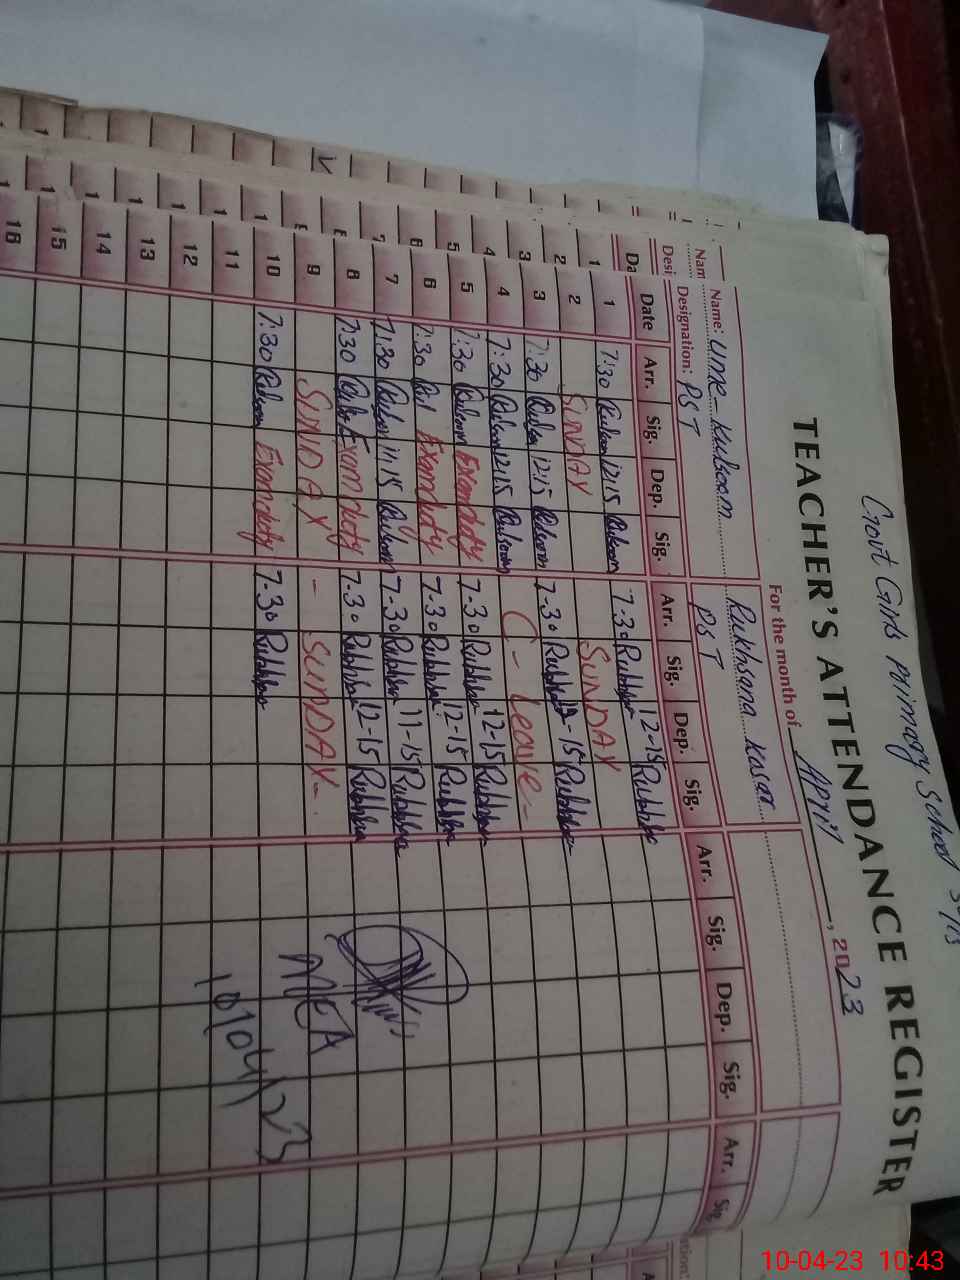 Govt Girls Primary School
TEACHER'S ATTENDANCE REGISTER
For the month of April, 2023
Name: Ume-Kulsoom Rukhsana Kosar
Designation: PST PST
Date Arr. Sig. Dep. Sig. Arr. Sig. Dep. Sig. Arr. Sig. Dep. Sig. Arr. Sig.
1 7:30 Kulsoom 12:15 Kulsoom 7:30 12-15
2 SUNDAY SUNDAY
3 7:30 12:15 Kulsoom 7.30 12-15
4 7:30 Kulsoom 12:15 Kulsoom C-Leave-
5 7:30 Kulsoom Examduty 7.30 12-15
6 7:30 Kul Examduty 7.30 12-15
7 7:30 Kulsoom 11:15 Kulsoom 7.30 11-15
8 7:30 Examduty 7.30 12-15
9 SUNDAY - SUNDAY-
10 7:30 Kulsoom Examduty 7.30
11
12
13
14
15
16
MEA
10/04/23
10-04-23 10:43